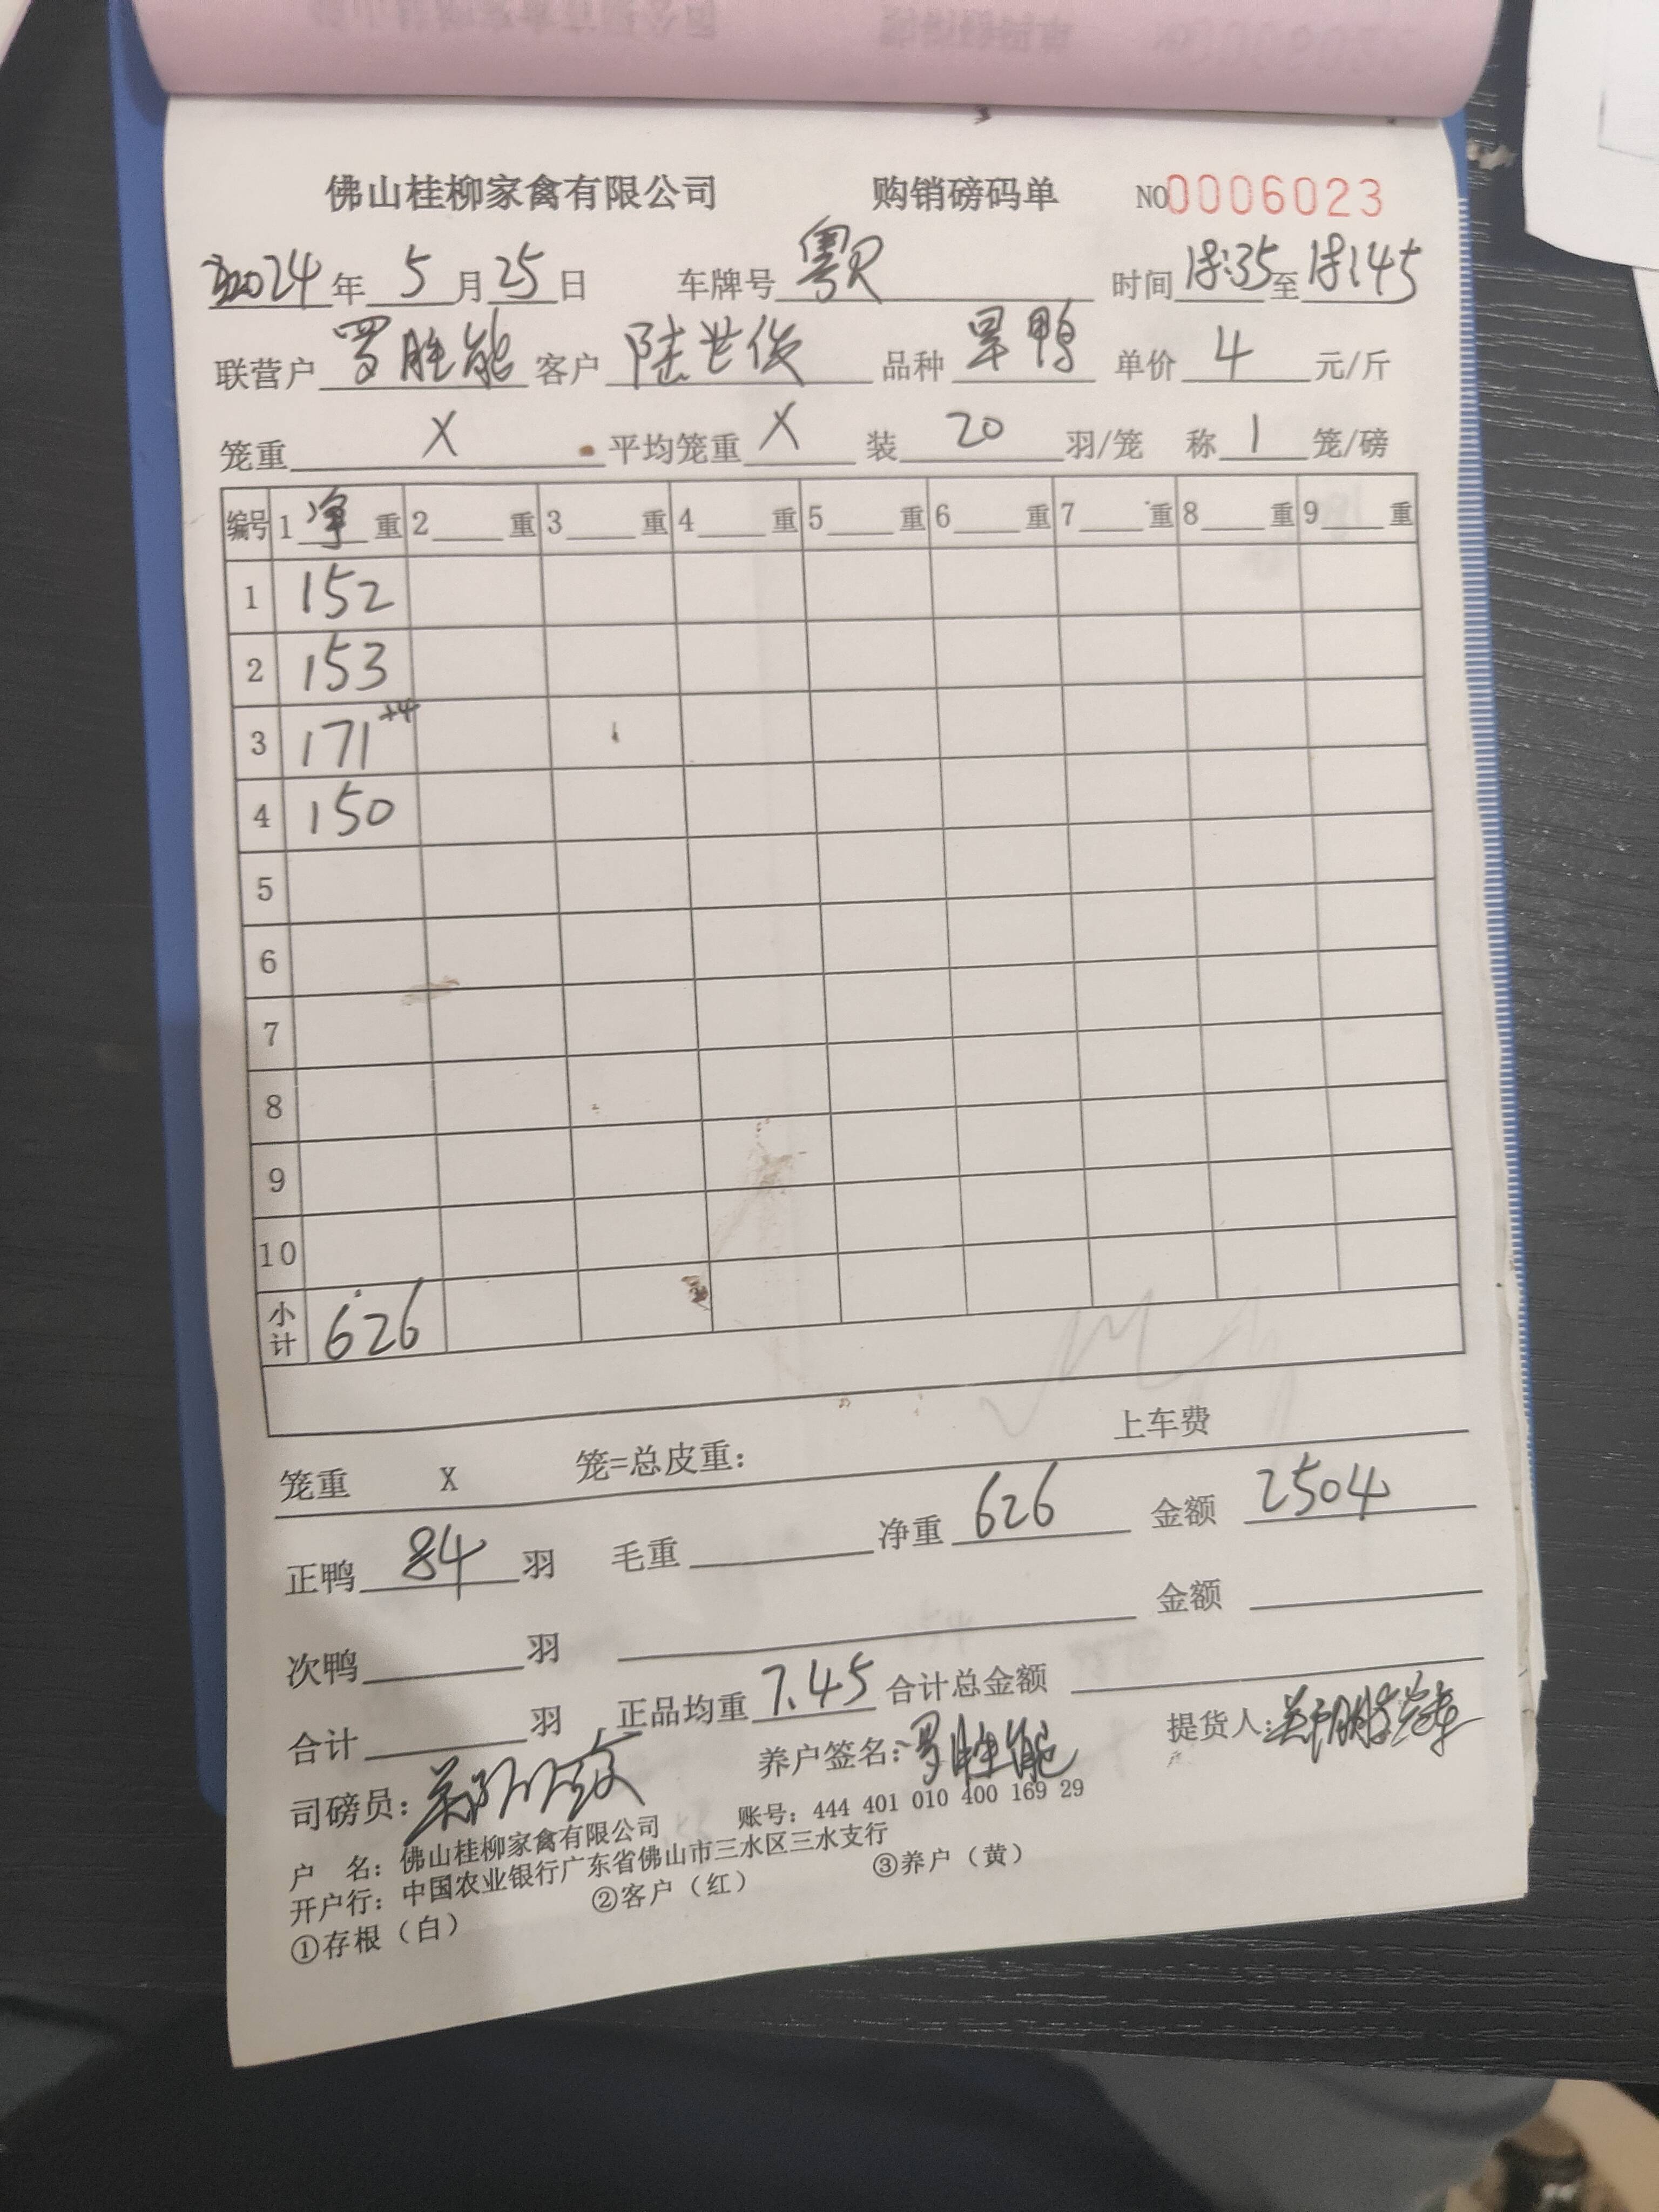 佛山桂柳家禽有限公司 购销磅码单 NO0006023
2024年5月25日 车牌号粤R 时间18:35至18:45
联营户罗胜能 客户陆世俊 品种旱鸭 单价4元/斤
笼重X 平均笼重X 装20羽/笼 称1笼/磅
编号 1净重 2重 3重 4重 5重 6重 7重 8重 9重
1 152
2 153
3 171+4
4 150
5
6
7
8
9
10
小计 626
上车费
笼重 X 笼=总皮重:
正鸭84羽 毛重 净重626 金额2504
次鸭 羽 金额
合计 羽 正品均重7.45 合计总金额
司磅员: 养户签名:罗胜能 提货人:
户 名: 佛山桂柳家禽有限公司 账号: 444 401 010 400 169 29
开户行: 中国农业银行广东省佛山市三水区三水支行
①存根（白） ②客户（红） ③养户（黄）